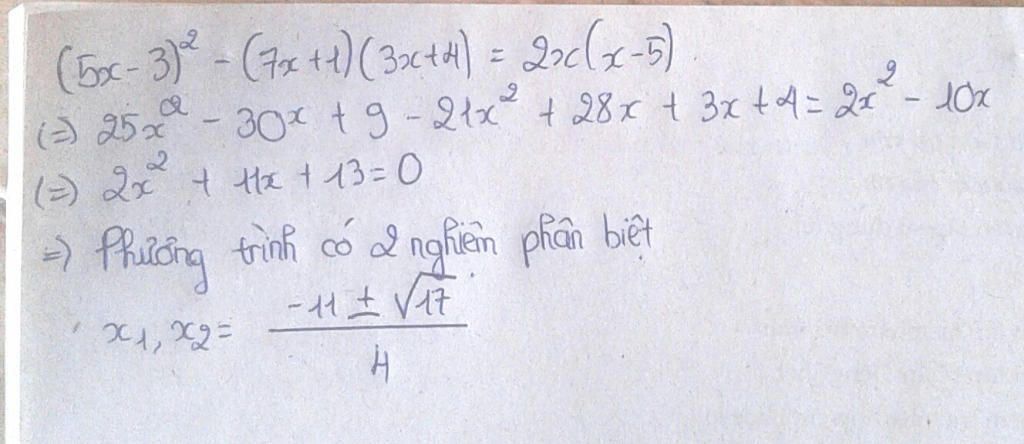 (5x - 3)² - (7x + 1)(3x + 4) = 2x(x - 5)
(=) 25x² - 30x + 9 - 21x² + 28x + 3x + 4 = 2x² - 10x
(=) 2x² + 11x + 13 = 0
=) Phương trình có 2 nghiện phân biệt
x₁, x₂ = (-11 ± √17) / 4